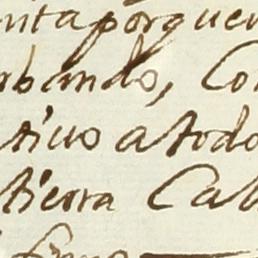 nta porquen
rbando, Con
tiuo a todo
tierra Cal